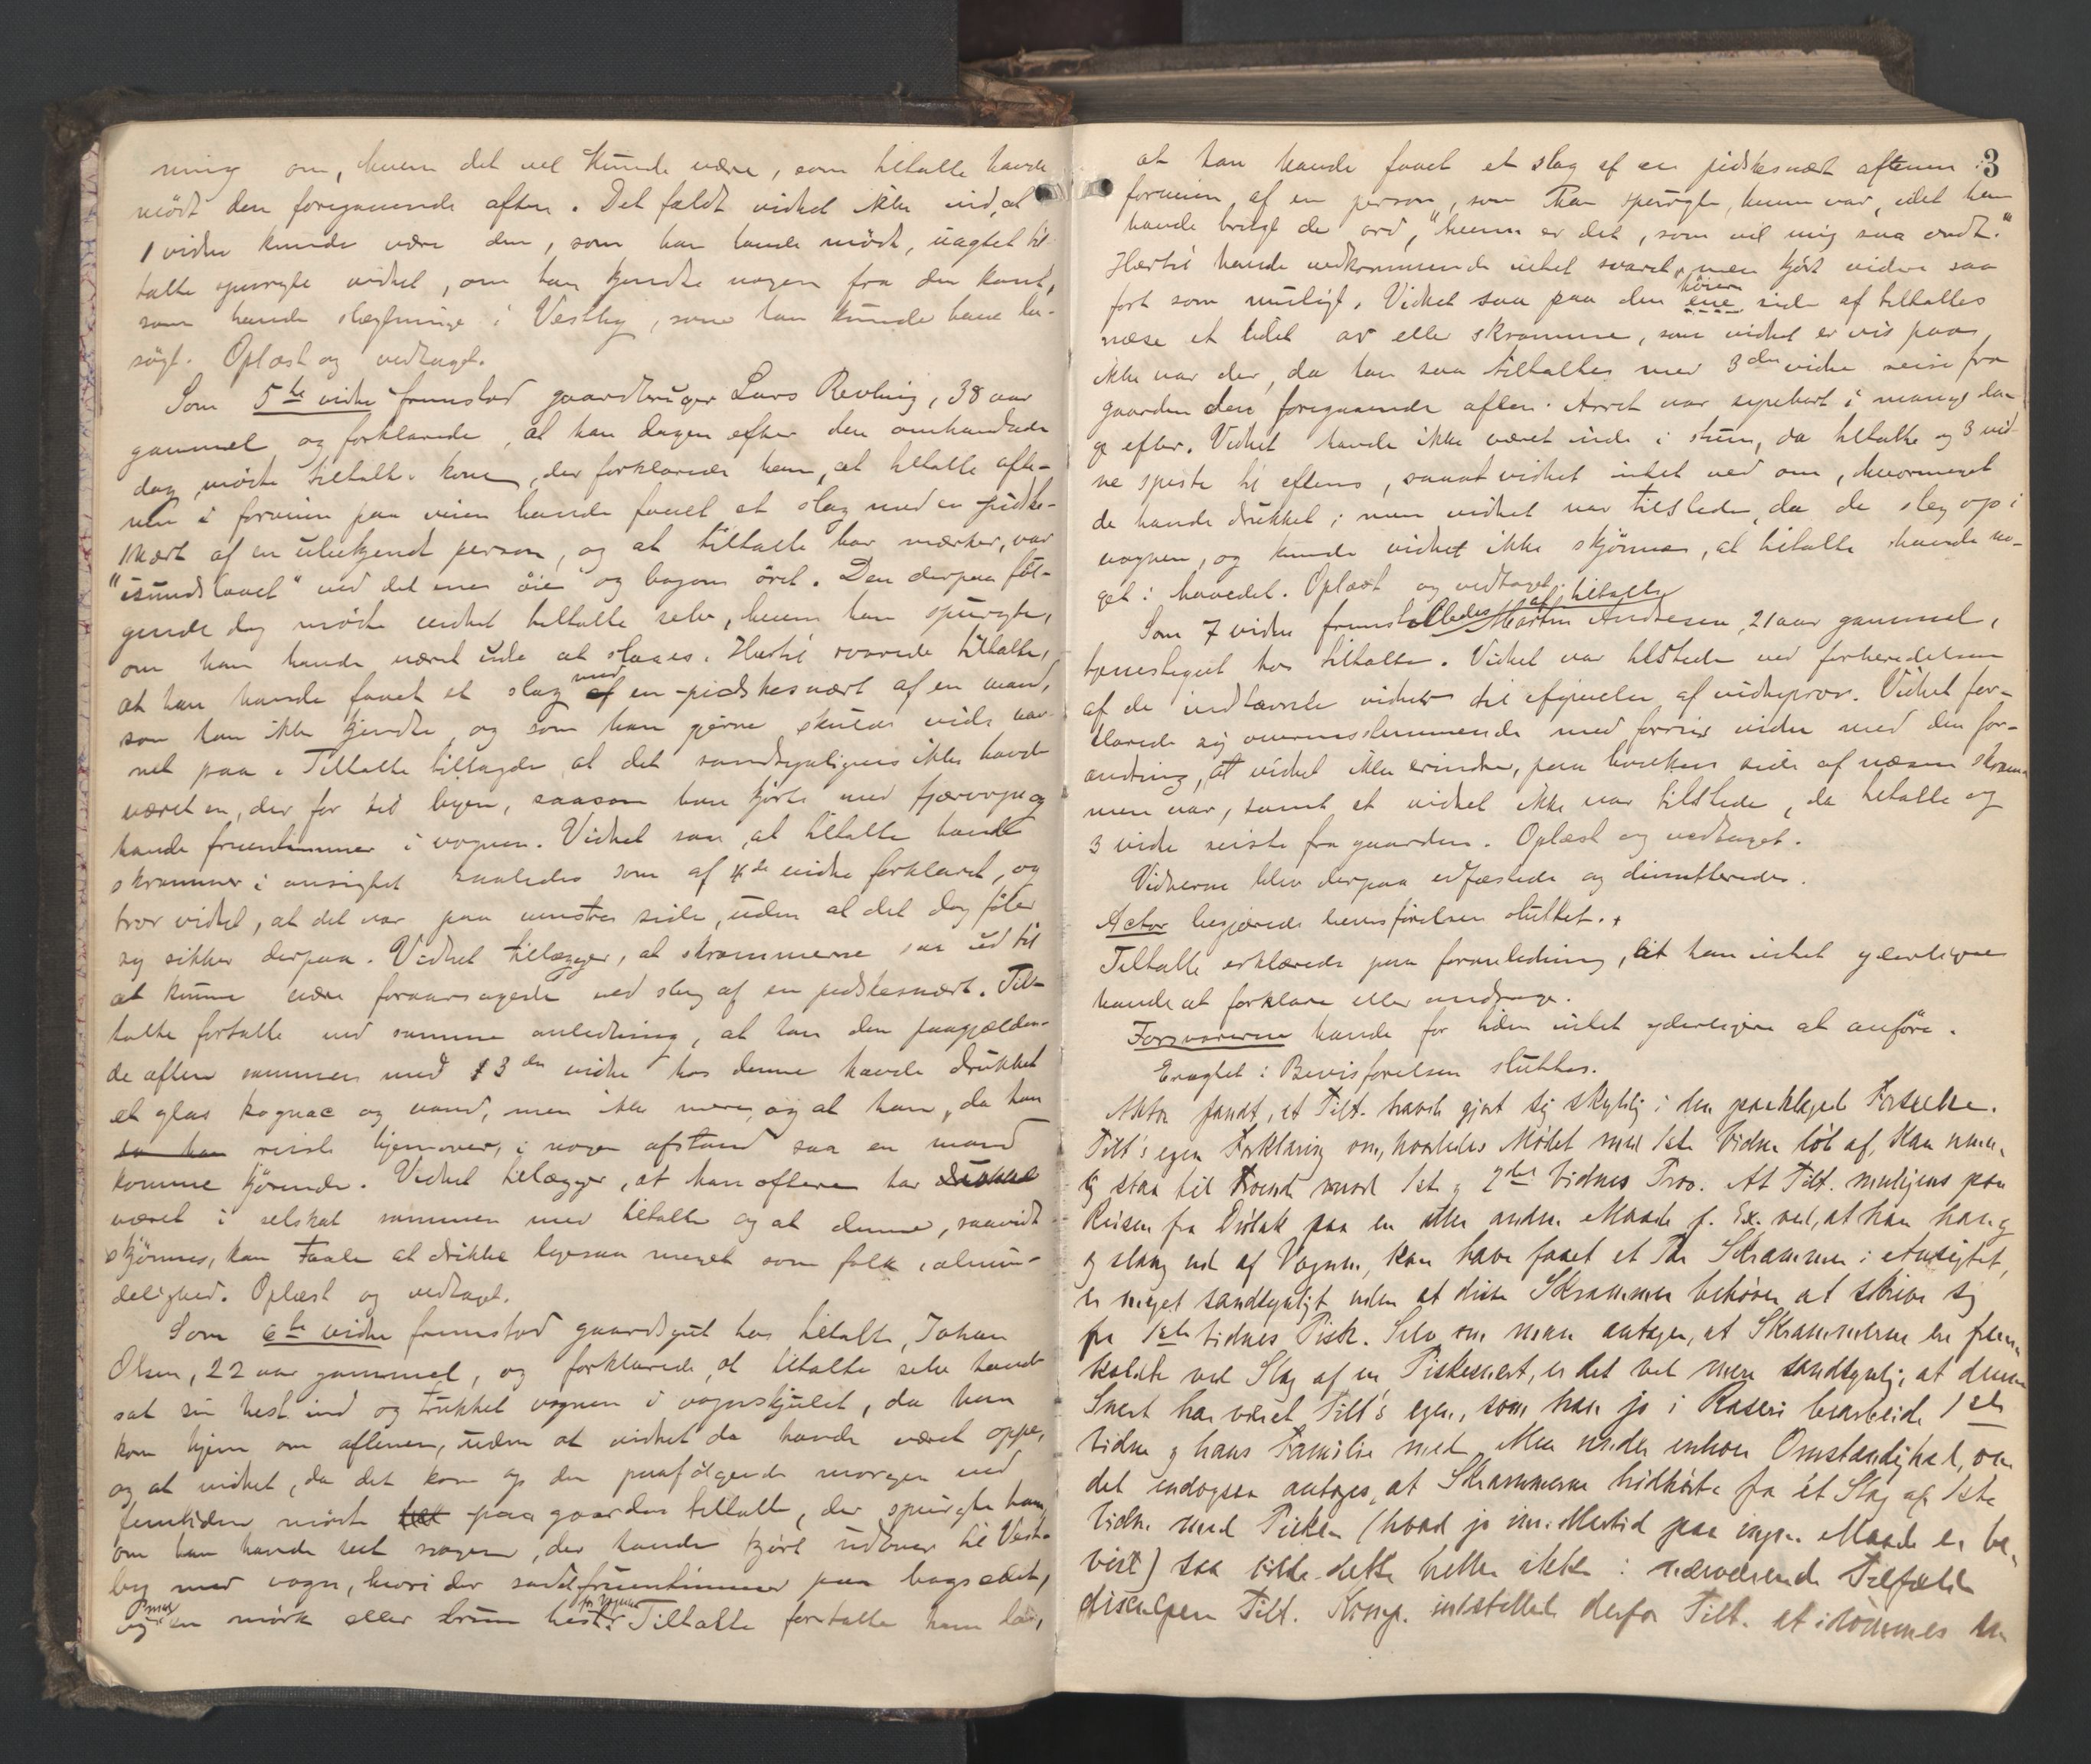 ning om, hvem det vel kunde være, som tiltalte havde
mödt den foregaaende aften. Det faldt vidnet ikke ind, at
1 vidne kunde være den, som han havde mödt, uagtet til-
talte spurgte vidnet, om han kjendte nogen fra den kant,
som havde slægtninge i Vestby, som han kunde have be-
sögt. Oplæst og vedtaget.
Som 5te vidne fremstod gaardbruger Lars Revling, 38 aar
gammel og forklarede, at han dagen efter den omhandlede
dag mödte tiltaltes kone, der forklarede ham, at tiltalte afte-
nen i forveien paa veien havde faaet et slag med en pidske-
snært af en ubekjendt person, og at tiltalte har mærker, var
"isundslaaet" ved det ene öie og bagom öret. Den derpaa föl-
gende dag mödte vidnet tiltalte selv, hvem han spurgte,
om han havde været ude at slaaes. Hertil svarede tiltalte,
at han havde faaet et slag af med en pidskesnært af en mand,
som han ikke kjendte og som han gjerne skulde vide nav-
net paa. Tiltalte tilfögede at det sandsynligvis ikke havde
været en, der for til byen, saasom han kjörte med fjærvogn og
havde fruentimmer i vognen. Vidnet saa, at tiltalte havde
skrammer i ansigtet saaledes som af 4de vidne forklaret, og
tror vidnet, at det var paa venstre side, uden at det dog föler
sig sikker derpaa. Vidnet tillægger, at skrammerne saa ud til
at kunne være foraarsagede ved slag af en pidskesnært. Til-
talte fortalte ved samme anledning, at han den paagjælden-
de aften sammen med 3die vidne hos denne havde drukket
et glas kognac og vand, men ikke mere, og at han, da han
da han reiste hjemover, i nogen afstand saa en mand
komme kjörende. Vidnet tillægger, at han oftere har drukket
været i selskab sammen med tiltalte og at denne, saavidt
skjönnes, kan taale at drikke ligesaa meget som folk i almin-
delighed. Oplæst og vedtaget.
Som 6te vidne fremstod gaardsgut hos tiltalte, Johan
Olsen, 22 aar gammel, og forklarede, at tiltalte selv havde
sat sin hest ind og trukket vognen i vognskjulet, da han
kom hjem om aftenen, uden at vidnet da havde været oppe,
og at vidnet, da det kom op den paafölgende morgen ved
femtiden mödte paa gaarden tiltalte, der spurgte ham,
om han havde seet nogen, der havde kjört udover til Vest-
by med vogn, hvori der sad fruentimmer paa bagsædet,
og med en mörk eller brun hest for vognen. Tiltalte fortalte ham da,
3
at han havde faaet et slag af en pidskesnært aftenen i
forveien af en person, som han spurgte, hvem var, idet han
havde brugt de ord, "hvem er det, som vil mig saa ondt."
Hertil havde vedkommende intet svaret, men kjört videre saa
fort som muligt. Vidnet saa paa den ene höire side af tiltaltes
næse et lidet ar eller skramme, som vidnet er vis paa
ikke var der, da han saa tiltalte med 3die vidne reise fra
gaarden den foregaaende aften. Arret var synbart i mange da-
ge efter. Vidnet havde ikke været inde i stuen, da tiltalte og 3 vid-
ne spiste til aftens, saaat vidnet intet ved om, hvormeget
de havde drukket; men vidnet var tilstede, da de steg op i
vognen, og kunde vidnet ikke skjönne, at tiltalte havde no-
get i hovedet. Oplæst og vedtaget.
Som 7 vidne fremstilledes af tiltalte Martin Andresen, 21 aar gammel,
tjenestegut hos tiltalte. Vidnet var tilstede ved forberedelsen
af de indstævnte vidner til afgivelse af vidneprov. Vidnet for-
klarede sig overensstemmende med forrige vidne med den for-
andring, at vidnet ikke erindrer, paa hvilken side af næsen skram-
men var, samt at vidnet ikke var tilstede, da tiltalte og
3 vidne reiste fra gaarden. Oplæst og vedtaget.
Vidnerne blev derpaa edfæstede og dimitterede.
Actor begjærede bevisförelsen sluttet.
Tiltalte erklærede paa foranledning, at han intet yderligere
havde at forklare eller andrage.
Forsvareren havde for tiden intet yderligere at anföre.
Eragtet: Bevisförelsen sluttes.
Aktor fandt, at Tilt. havde gjort sig skyldig i den paaklagede Forseelse.
Tilt's egen Forklaring om, hvorledes Mödet med 1ste Vidne löb af, kan umu-
lig staa til Troende mod 1ste og 2det Vidnes Prov. At Tilt. muligens paa
Reisen fra Dröbak paa en eller anden Maade f. Ex. ved, at han hang
og slang ud af Vognen, kan have faaet et Par Skrammer i Ansigtet,
er meget sandsynligt, uden at disse Skrammer behöver at skrive sig
fra 1ste Vidnes Pisk. Selv om man antager, at Skrammerne er frem-
kaldte ved Slag af en Piskesnert, er det vel mere sandsynlig, at denne
Snert har været Tilt's egen, som han jo i Raseri bearbeide 1ste
Vidne og hans Familie med. Men under enhver Omstændighed, om
det endogsaa antages, at Skrammerne hidhörte fra ét Slag af 1ste
Vidne med Pisken (hvad jo imidlertid paa ingen Maade er be-
vist) saa vilde dette heller ikke i nærværende Tilfælde
disculpere Tilt. Komp. indstillede derfor Tilt. at idömmes en